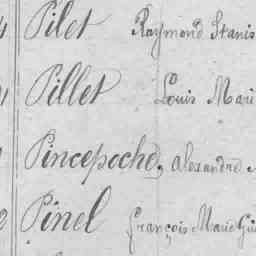 Pilet Raymond Stanis
Pillet Louis Mari
Pincepoche, alexandre
Pinel françois Marie